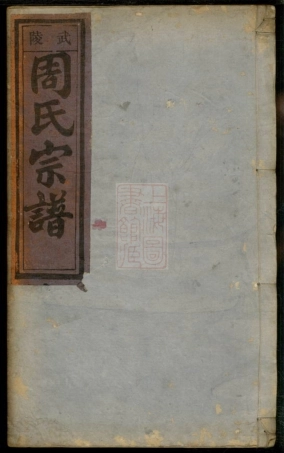 武陵
周氏宗譜
上海圖書館藏